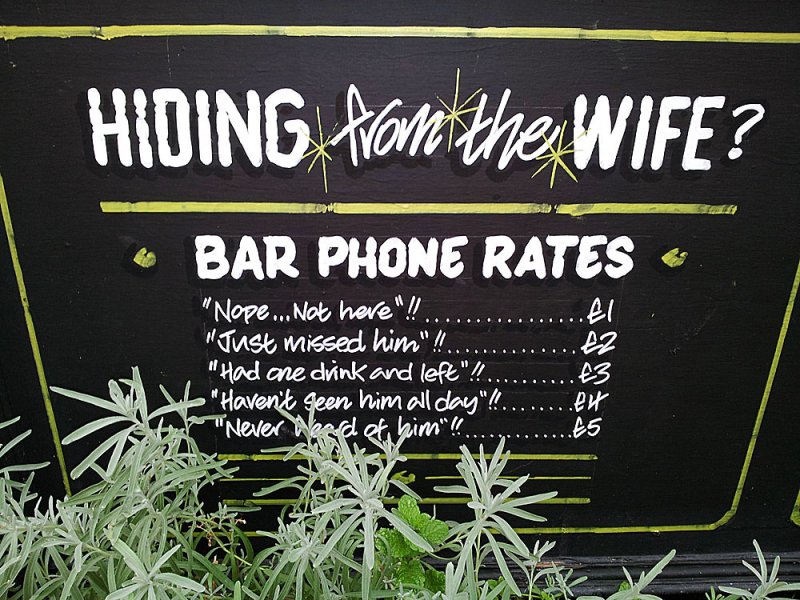 HIDING from the WIFE?
BAR PHONE RATES
"Nope...Not here"!!................£1
"Just missed him"!!................£2
"Had one drink and left"!!............£3
"Haven't seen him all day"!!.........£4
"Never heard of him"!!..............£5